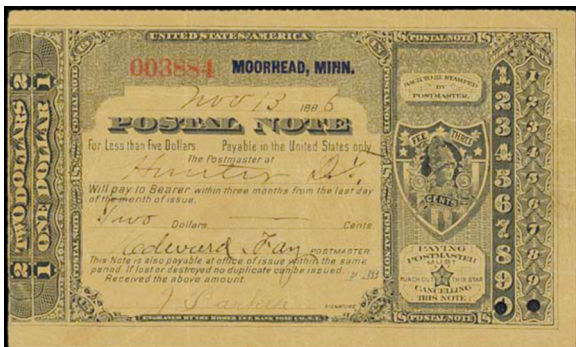 UNITED STATES/AMERICA
POSTAL NOTE
003884 MOORHEAD, MINN.
Nov 13 1886
POSTAL NOTE
For Less than Five Dollars Payable in the United States only
The Postmaster at
Hunter D.T.
Will pay to Bearer within three months from the last day
of the month of issue.
Two Dollars Cents
Edward Fay POSTMASTER
This Note is also payable at office of issue within the same
period. If lost or destroyed no duplicate can be issued.
Received the above amount.
SIGNATURE
ENGRAVED BY THE HOMER LEE BANK NOTE CO. N.Y.
TWO DOLLARS 2
1 ONE DOLLAR 1
BACK TO BE STAMPED
BY
POSTMASTER
FEE THREE
CENTS
PAYING
POSTMASTER
MUST
PUNCH OUT THIS STAR
CANCELLING
THIS NOTE
POSTAL NOTE
1 1
2 2
3 3
4 4
5 5
6 6
7 7
8 8
9 9
0 0